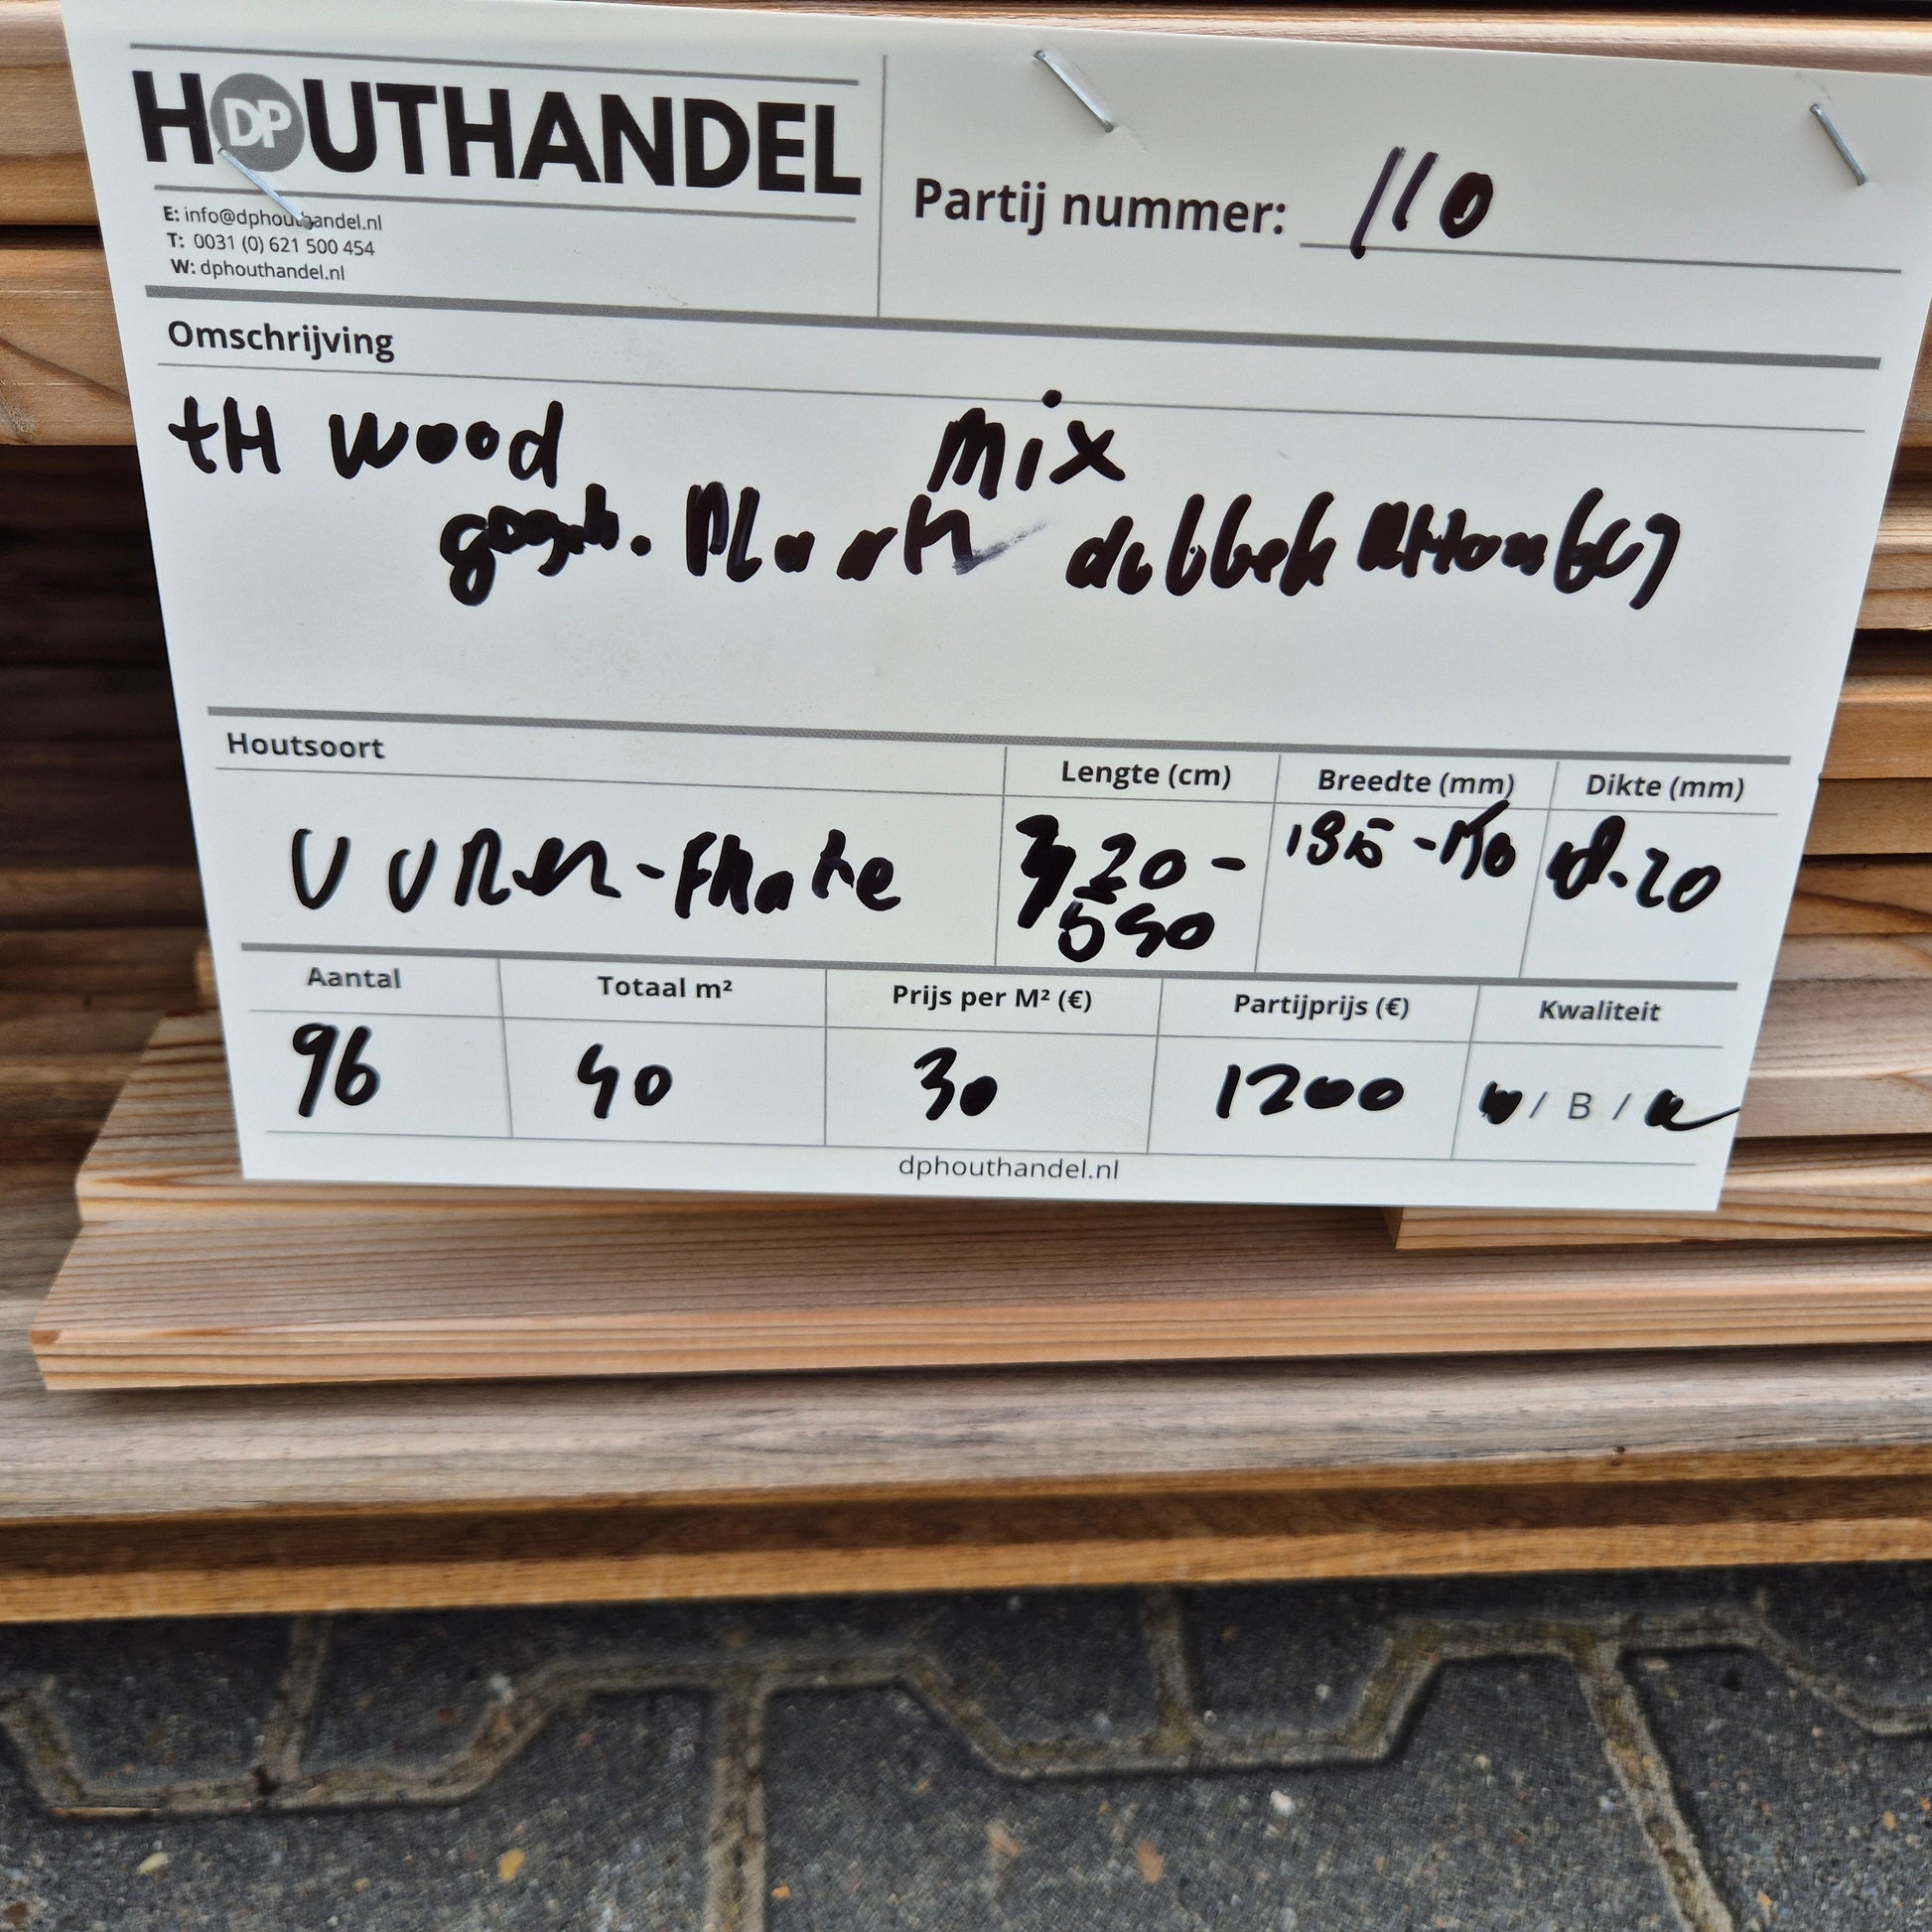 HOUTHANDEL
DP
E: info@dphouthandel.nl
T: 0031 (0) 621 500 454
W: dphouthandel.nl
Partij nummer: 110
Omschrijving
tH wood mix
Plank dubbel
Houtsoort
Lengte (cm)
Breedte (mm)
Dikte (mm)
VUREN-
320 -
540
.20
Aantal
Totaal m²
Prijs per M² (€)
Partijprijs (€)
Kwaliteit
96
40
30
1200
/ B /
dphouthandel.nl